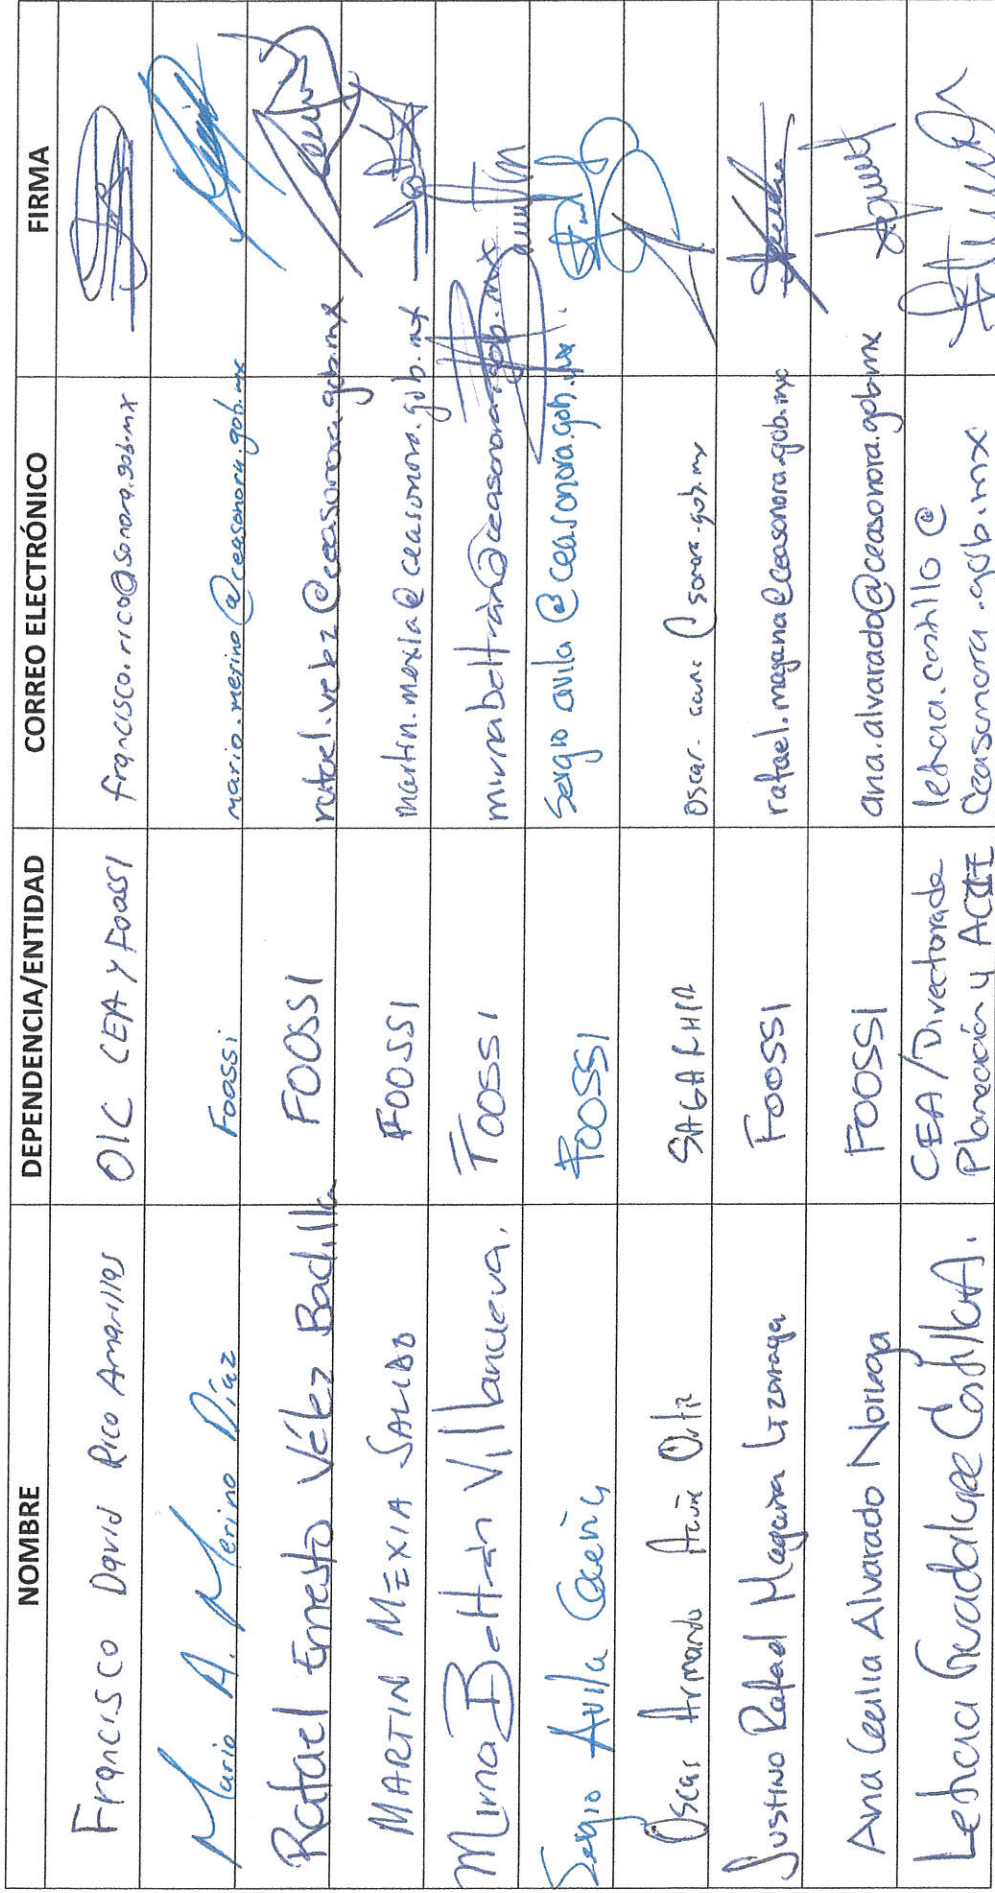 NOMBRE DEPENDENCIA/ENTIDAD CORREO ELECTRÓNICO FIRMA
Francisco David Rico Amarillas OIC CEA y Foossi francisco.rico@sonora.gob.mx
Mario A. Merino Díaz Foossi mario.merino@ceasonora.gob.mx
Rafael Ernesto Vélez Badilla FOOSSI rafael.velez@ceasonora.gob.mx
MARTIN MEXIA SALIDO FOOSSI martin.mexia@ceasonora.gob.mx
Mirna Beltrán Villanueva. Foossi mirnabeltran@ceasonora.gob.mx
Sergio Avila FOOSSI sergio avila @ ceasonora.gob.mx.
Oscar Armando SAGARHPA
Justino Rafael Magaña FOOSSI rafael.magana@ceasonora.gob.mx
Ana Cecilia Alvarado Noriega FOOSSI ana.alvarado@ceasonora.gob.mx
Leticia Guadalupe Castillo A. CEA/Directora de leticia.castillo@
Planeación y ceasonora.gob.mx